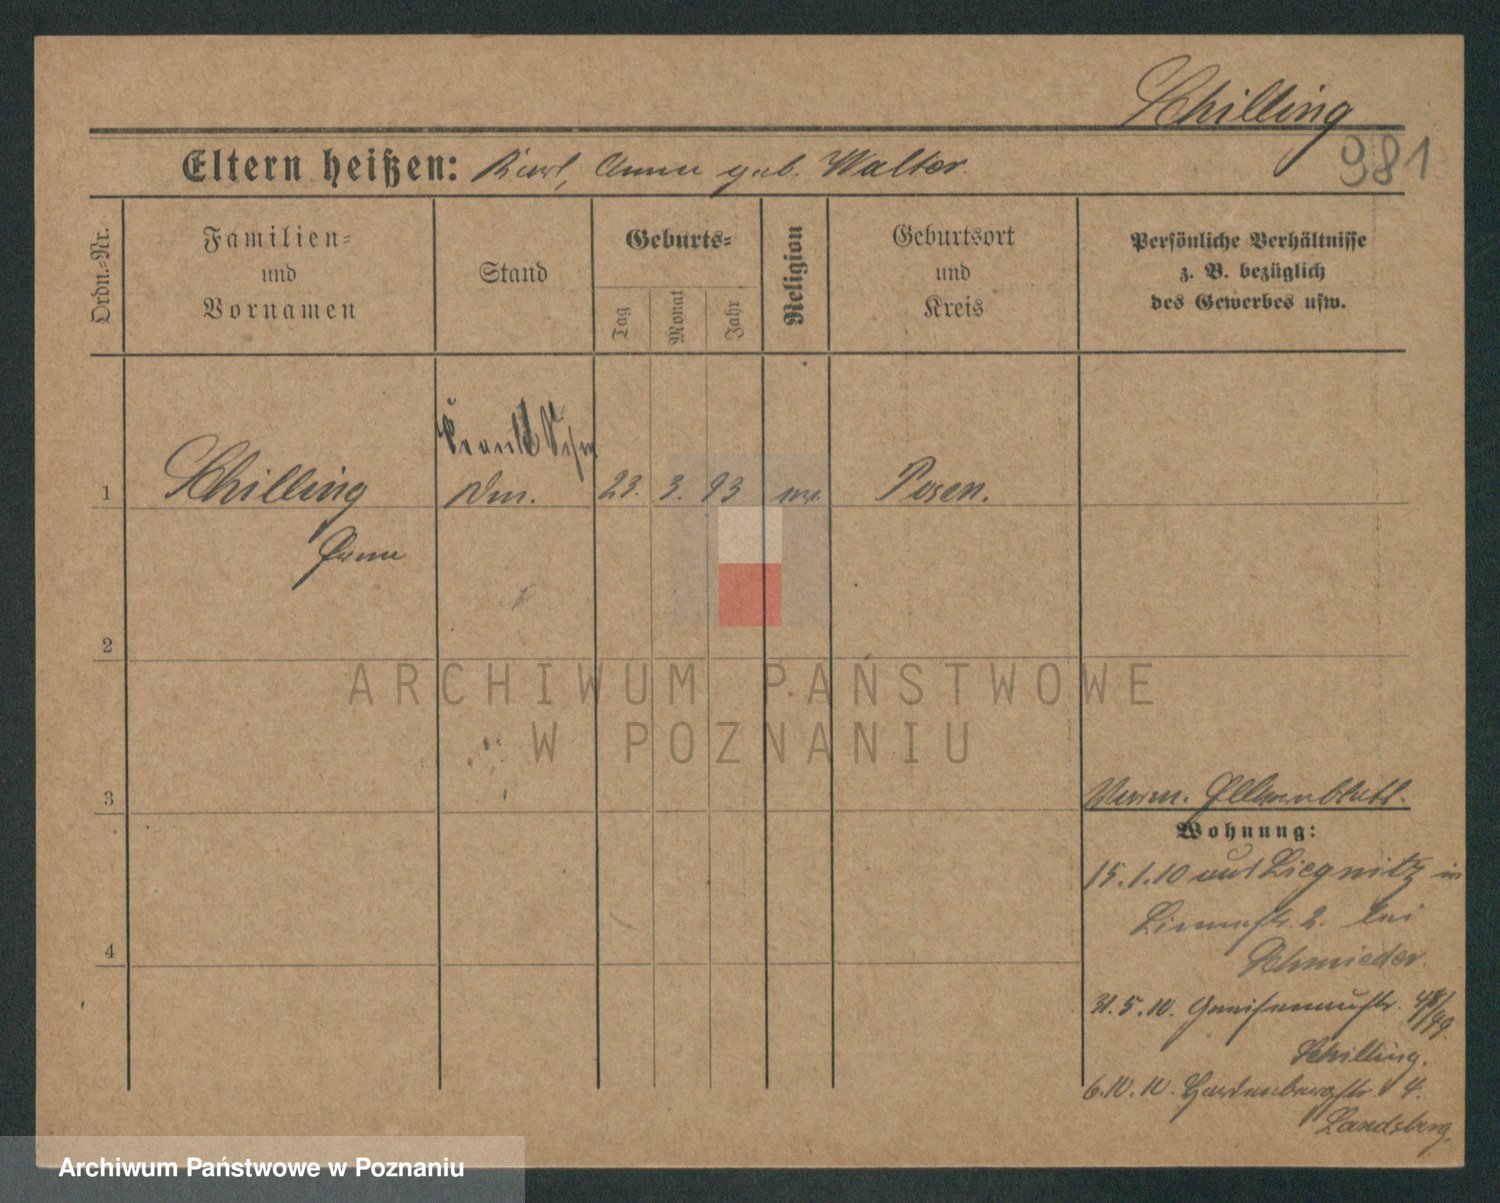 Schilling
981
Eltern heißen: Karl, Anna geb. Walter.
Ordn.-Nr.
Familien-
und
Vornamen
Stand
Geburts-
Tag
Monat
Jahr
Religion
Geburtsort
und
Kreis
Persönliche Verhältnisse
z. B. bezüglich
des Gewerbes usw.
1
Schilling
23. 3. 93
Posen.
2
3
4
Wohnung:
15.1.10 aus Liegnitz in
2. bei
Schmieder.
31.5.10. Gneisenaustr. 48/49.
Schilling.
6.10.10. Hardenbergstr. 4.
Landsberg.
ARCHIWUM PAŃSTWOWE
W POZNANIU
Archiwum Państwowe w Poznaniu